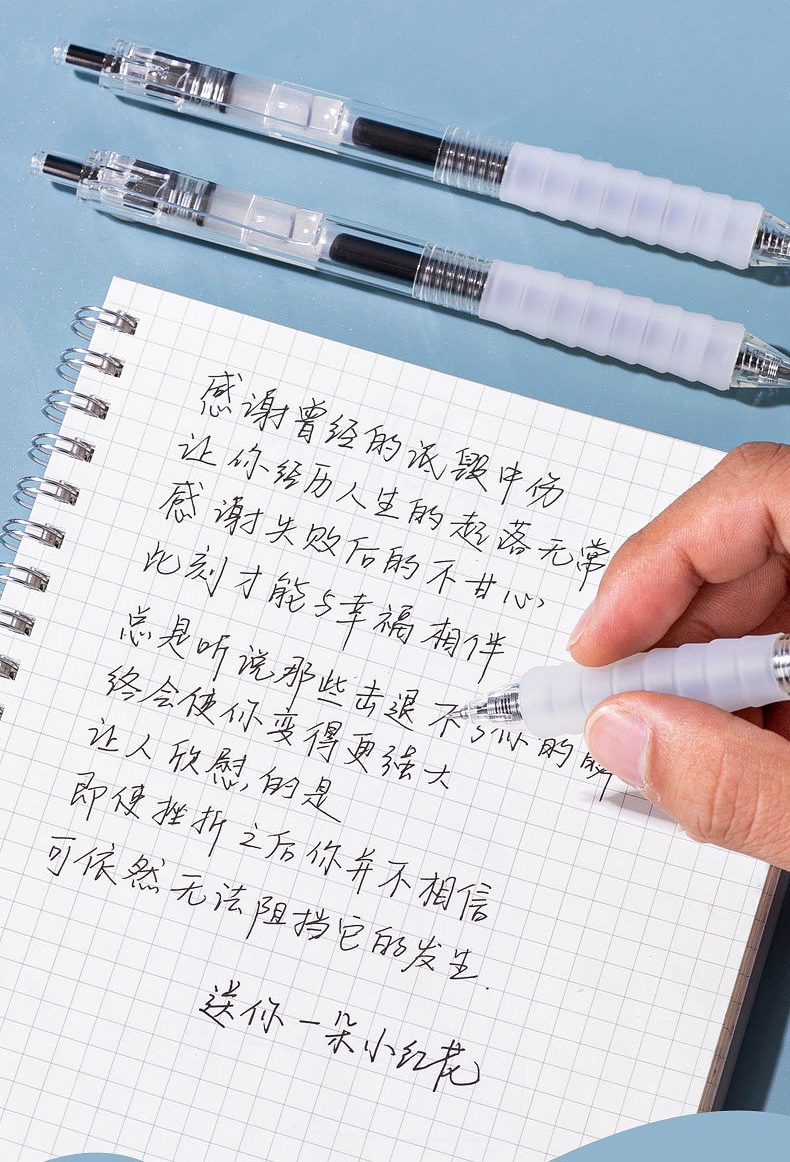 感谢曾经的诋毁中伤
让你经历人生的起落无常
感谢失败后的不甘心
此刻才能与幸福相伴
总是听说那些击退不了你的瞬
终会使你变得更强大
让人欣慰的是
即使挫折之后你并不相信
可依然无法阻挡它的发生.
送你一朵小红花